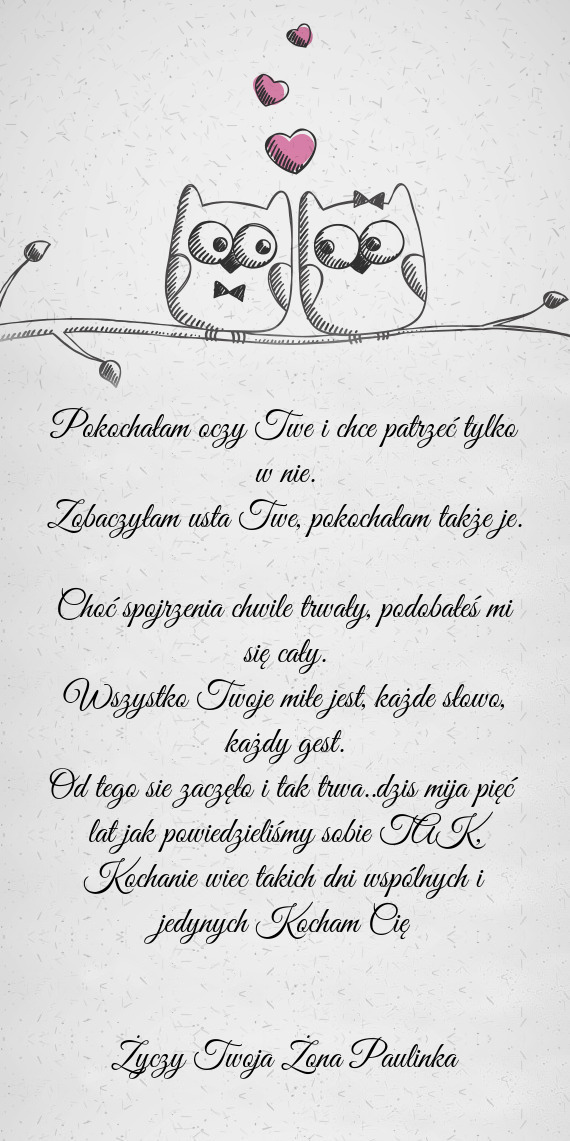 Pokochałam oczy Twe i chce patrzeć tylko
w nie.
Zobaczyłam usta Twe, pokochałam także je.
Choć spojrzenia chwile trwały, podobałeś mi
się cały.
Wszystko Twoje miłe jest, każde słowo,
każdy gest.
Od tego sie zaczęło i tak trwa..dzis mija pięć
lat jak powiedzieliśmy sobie TAK,
Kochanie wiec takich dni wspólnych i
jedynych Kocham Cię
Życzy Twoja Żona Paulinka